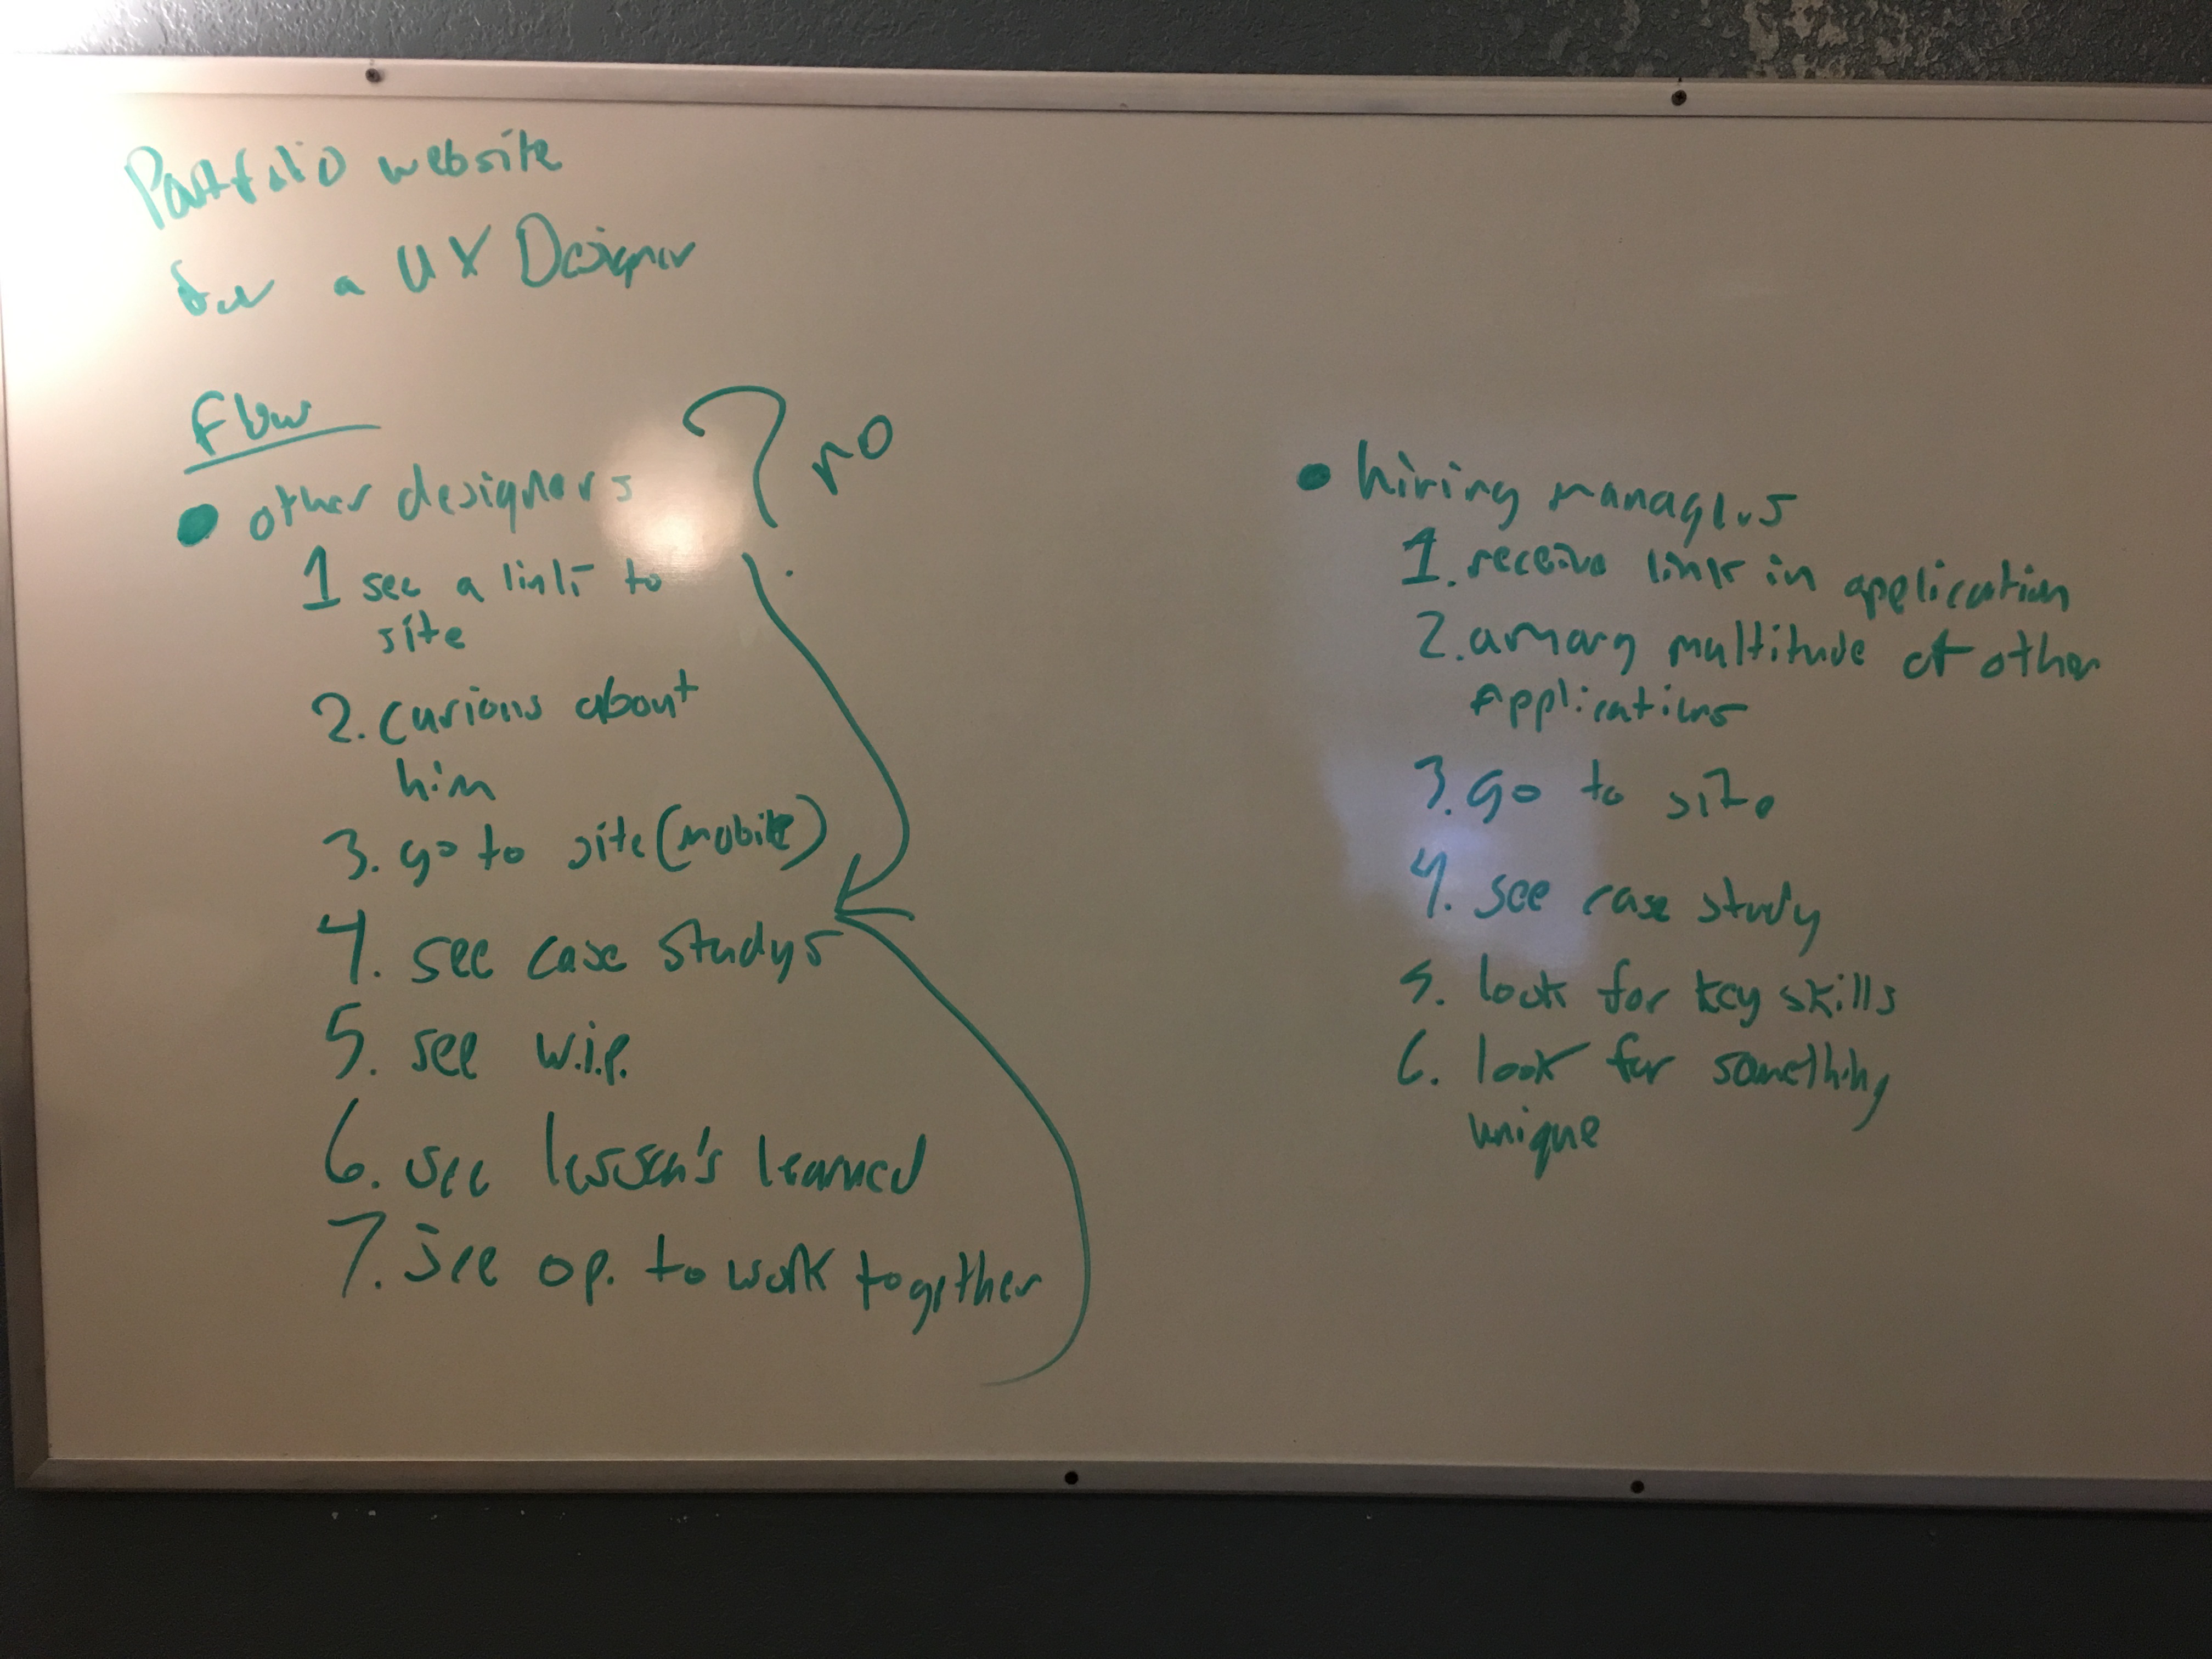 Portfolio website
for a UX Designer
Flow
other designers
? no
1 see a link to
site
2. curious about
him
3. go to site (mobile)
4. see case studys
5. see w.i.p.
6. see lesson's learned
7. see op. to work together
hiring managers
1. receive link in application
2. among multitude of other
applications
3. go to site
4. see case study
5. look for key skills
6. look for something
unique